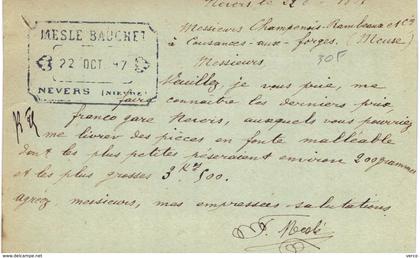 Nevers le 22
Messieurs Champenois-Rambeaux et Cie
MESLE BAUCHET
à Cousances-aux-forges. (Meuse)
22 OCT. 97
30F
Messieurs
NEVERS (NIEVRE)
Veuillez je vous prie, me
faire connaître les derniers prix
franco gare Nevers, auxquels vous pourriez
me livrer des pièces en fonte malléable
dont les plus petites pèseraient environ 200 grammes
et les plus grosses 3 Kos 500.
agréez messieurs, mes empressées salutations
F. Meslé